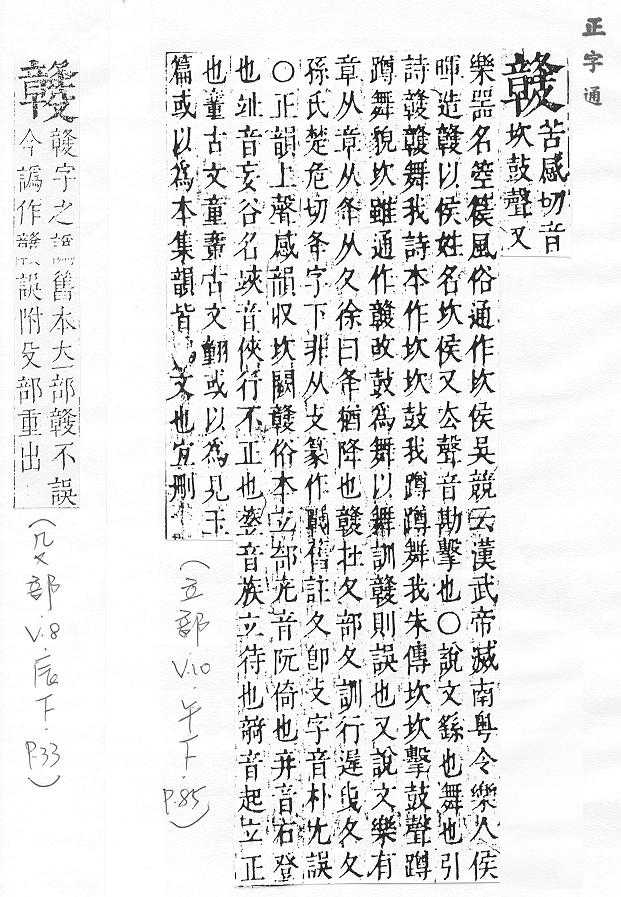 正字通
苦感切音
坎鼓聲又
樂器名箜篌風俗通作坎侯吳兢云漢武帝滅南粵令樂人侯
暉造贛以侯姓名坎侯又去聲音勘擊也〇說文繇也舞也引
詩贛贛舞我詩本作坎坎鼓我蹲蹲舞我朱傳坎坎擊鼓聲蹲
蹲舞貌坎雖通作贛改鼓爲舞以舞訓贛則誤也又說文樂有
章从章从夅从夂徐曰夅猶降也贛扗夂部夂訓行遲曳夂夂
孫氏楚危切夅字下非从攴篆作舊註夂卽攴字音朴尤誤
〇正韻上聲感韻収坎闕贛俗本立部
也音妄谷名音俠行不正也音族立待也音起立正
也童古文童古文或以爲見玉
篇或以爲本集韻皆文也宜刪
字之譌舊本大部不誤
今譌作誤附殳部重出
(立部 V.10.午下.P.85)
(殳部 V.8.辰下.P.33)